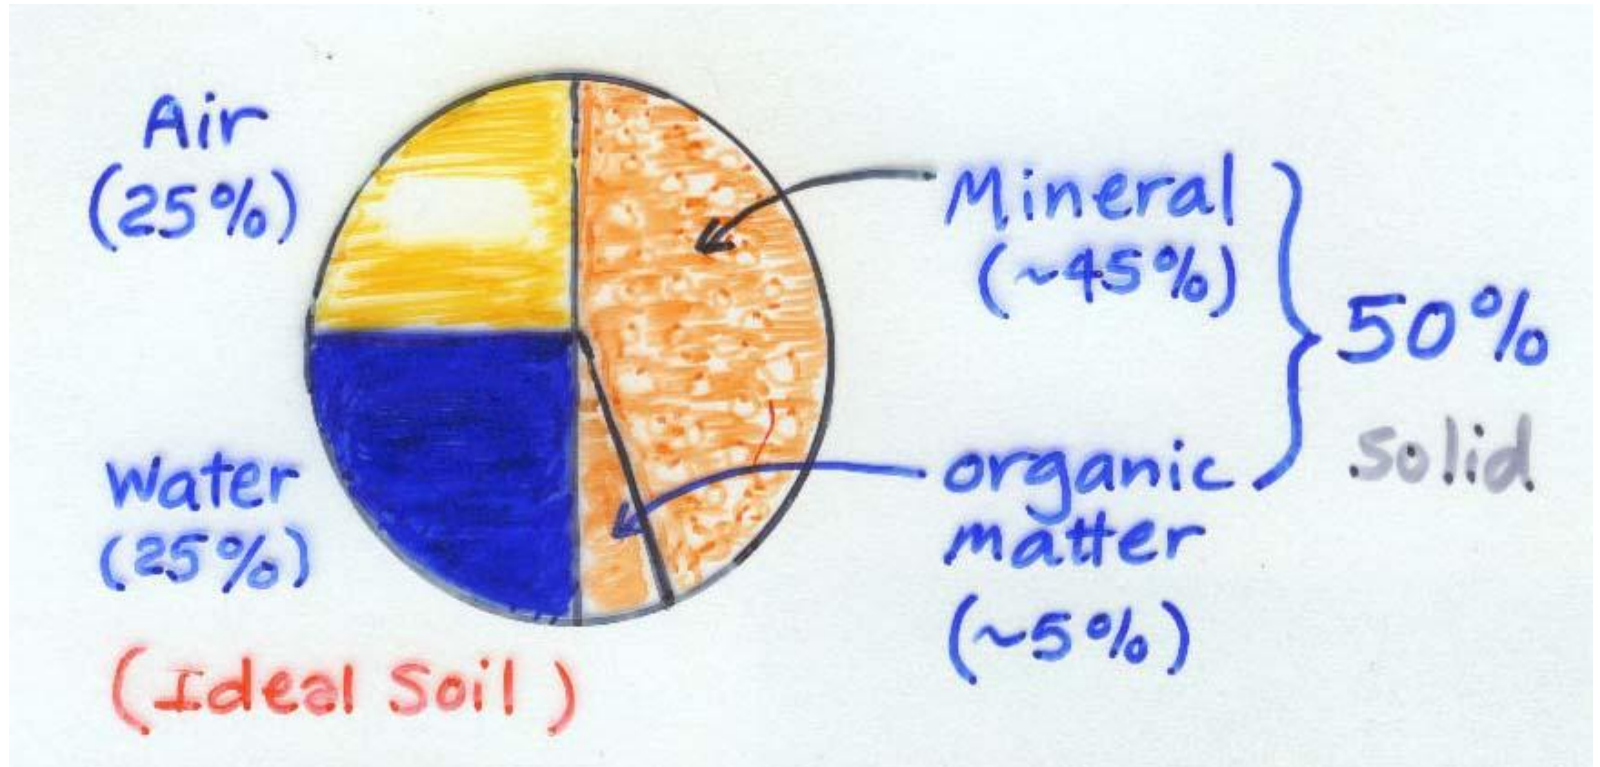 Air
(25%)
Water
(25%)
(Ideal Soil)
Mineral
(~45%)
organic
matter
(~5%)
50%
Solid